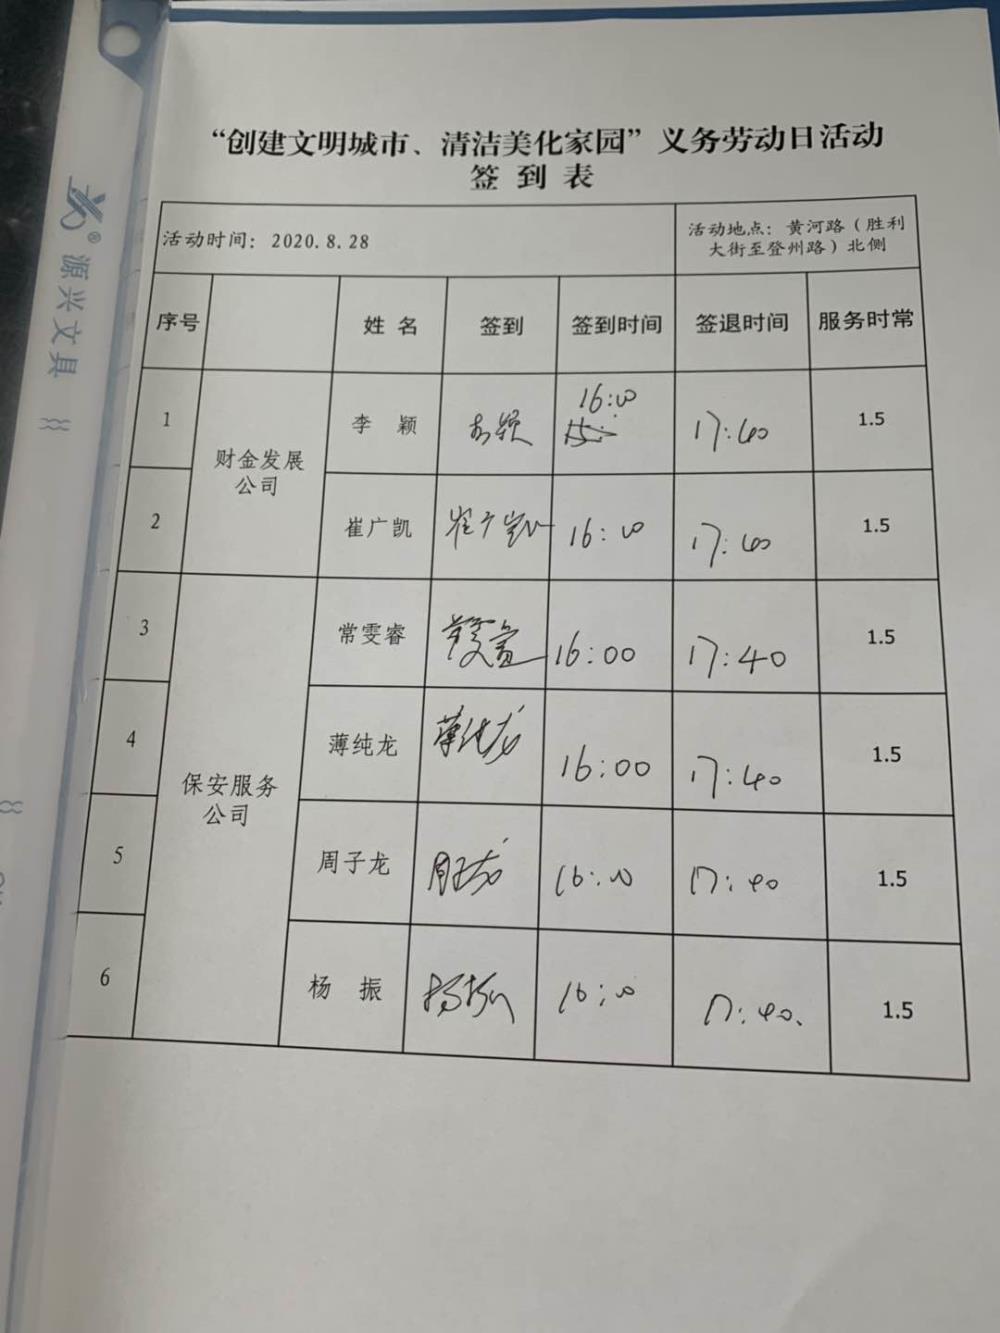 “创建文明城市、清洁美化家园”义务劳动日活动
签 到 表
活动时间：2020.8.28
活动地点：黄河路（胜利
大街至登州路）北侧
序号 姓 名 签到 签到时间 签退时间 服务时常
财金发展
公司
1 李 颖 李颖 16:00 17:40 1.5
2 崔广凯 崔广凯 16:00 17:40 1.5
保安服务
公司
3 常雯睿 常雯睿 16:00 17:40 1.5
4 薄纯龙 薄纯龙 16:00 17:40 1.5
5 周子龙 周子龙 16:00 17:40 1.5
6 杨 振 杨振 16:00 17:40. 1.5
源兴文具